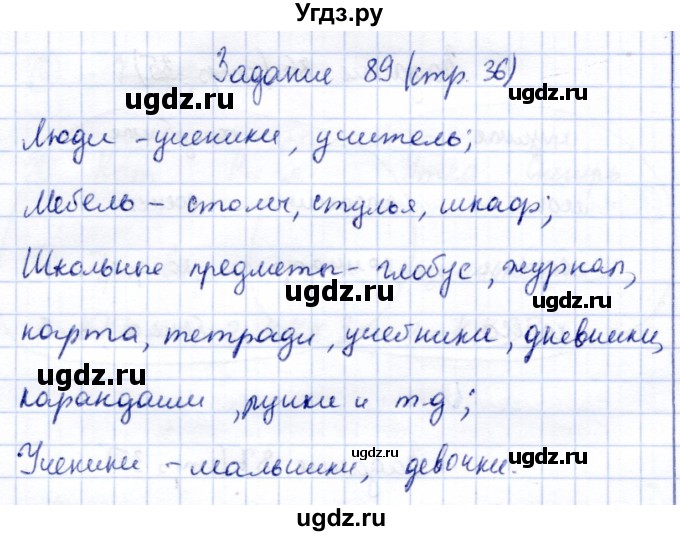 Угдз.ру
Задание 89 (стр. 36)
ugdz.ru ugdz.ru
Люди - ученики, учитель;
ugdz.ru
Мебель - столы, стулья, шкаф;
ugdz.ru
Школьные предметы - глобус, журнал,
ugdz.ru ugdz.ru
карта, тетради, учебники, дневники,
ugdz.ru ugdz.ru
карандаши, ручки и т.д;
ugdz.ru
Ученики - мальчики, девочки.
ugdz.ru
ugdz.ru